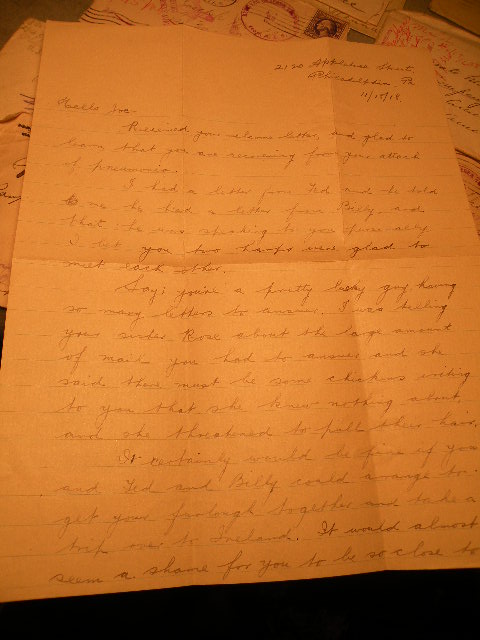 2120 Appletree Street,
Philadelphia Pa
11/15/18.
Hello Joe
Received your welcome letter, and glad to
learn that you are recovering from your attack
of pneumonia.
I had a letter from Ted and he told
me he had a letter from Billy, and
that he was speaking to you personally
I bet you two were glad to
met each other.
Say; you're a pretty lucky guy having
so many letters to answer. I was telling
your sister Rose about the large amount
of mail you had to answer and she
said there must be some chickens writing
to you that she knew nothing about,
and she threatened to pull their hair.
It certainly would be fine if you
and Ted and Billy could arrange to
get your furlough together and take a
trip over to Ireland. It would almost
seem a shame for you to be so close to